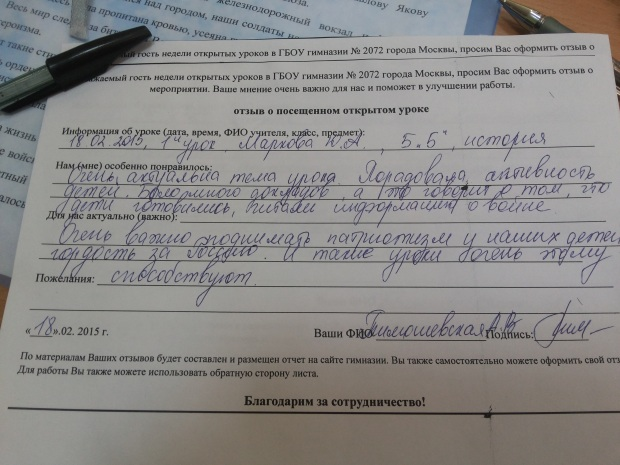 над городом, наши солдаты на
железнодорожный вокзал.
Якову
пропитана кровью, усеяна
Весь мир след
за бит
героизма.
такие
орден
жизнь
войск
тный гость недели открытых уроков в ГБОУ гимназии № 2072 города Москвы, просим Вас оформить отзыв о
ажаемый гость недели открытых уроков в ГБОУ гимназии № 2072 города Москвы, просим Вас оформить отзыв о
мероприятии. Ваше мнение очень важно для нас и поможет в улучшении работы.
отзыв о посещенном открытом уроке
Информация об уроке (дата, время, ФИО учителя, класс, предмет):
18.02.2015, 1й урок Маркова 5 "Б", история
Нам (мне) особенно понравилось:
Очень актуальна тема урока. Порадовала активность
детей. Было много докладов, а это говорит о том, что
дети готовились, читали информацию о войне
Для нас актуально (важно):
Очень важно поднимать патриотизм у наших детей
гордость за Россию. И такие уроки очень этому
Пожелания: способствуют.
«18».02. 2015 г. Ваши ФИО Тимошевская А.В Подпись:
По материалам Ваших отзывов будет составлен и размещен отчет на сайте гимназии. Вы также самостоятельно можете оформить свой отз
Для работы Вы также можете использовать обратную сторону листа.
Благодарим за сотрудничество!